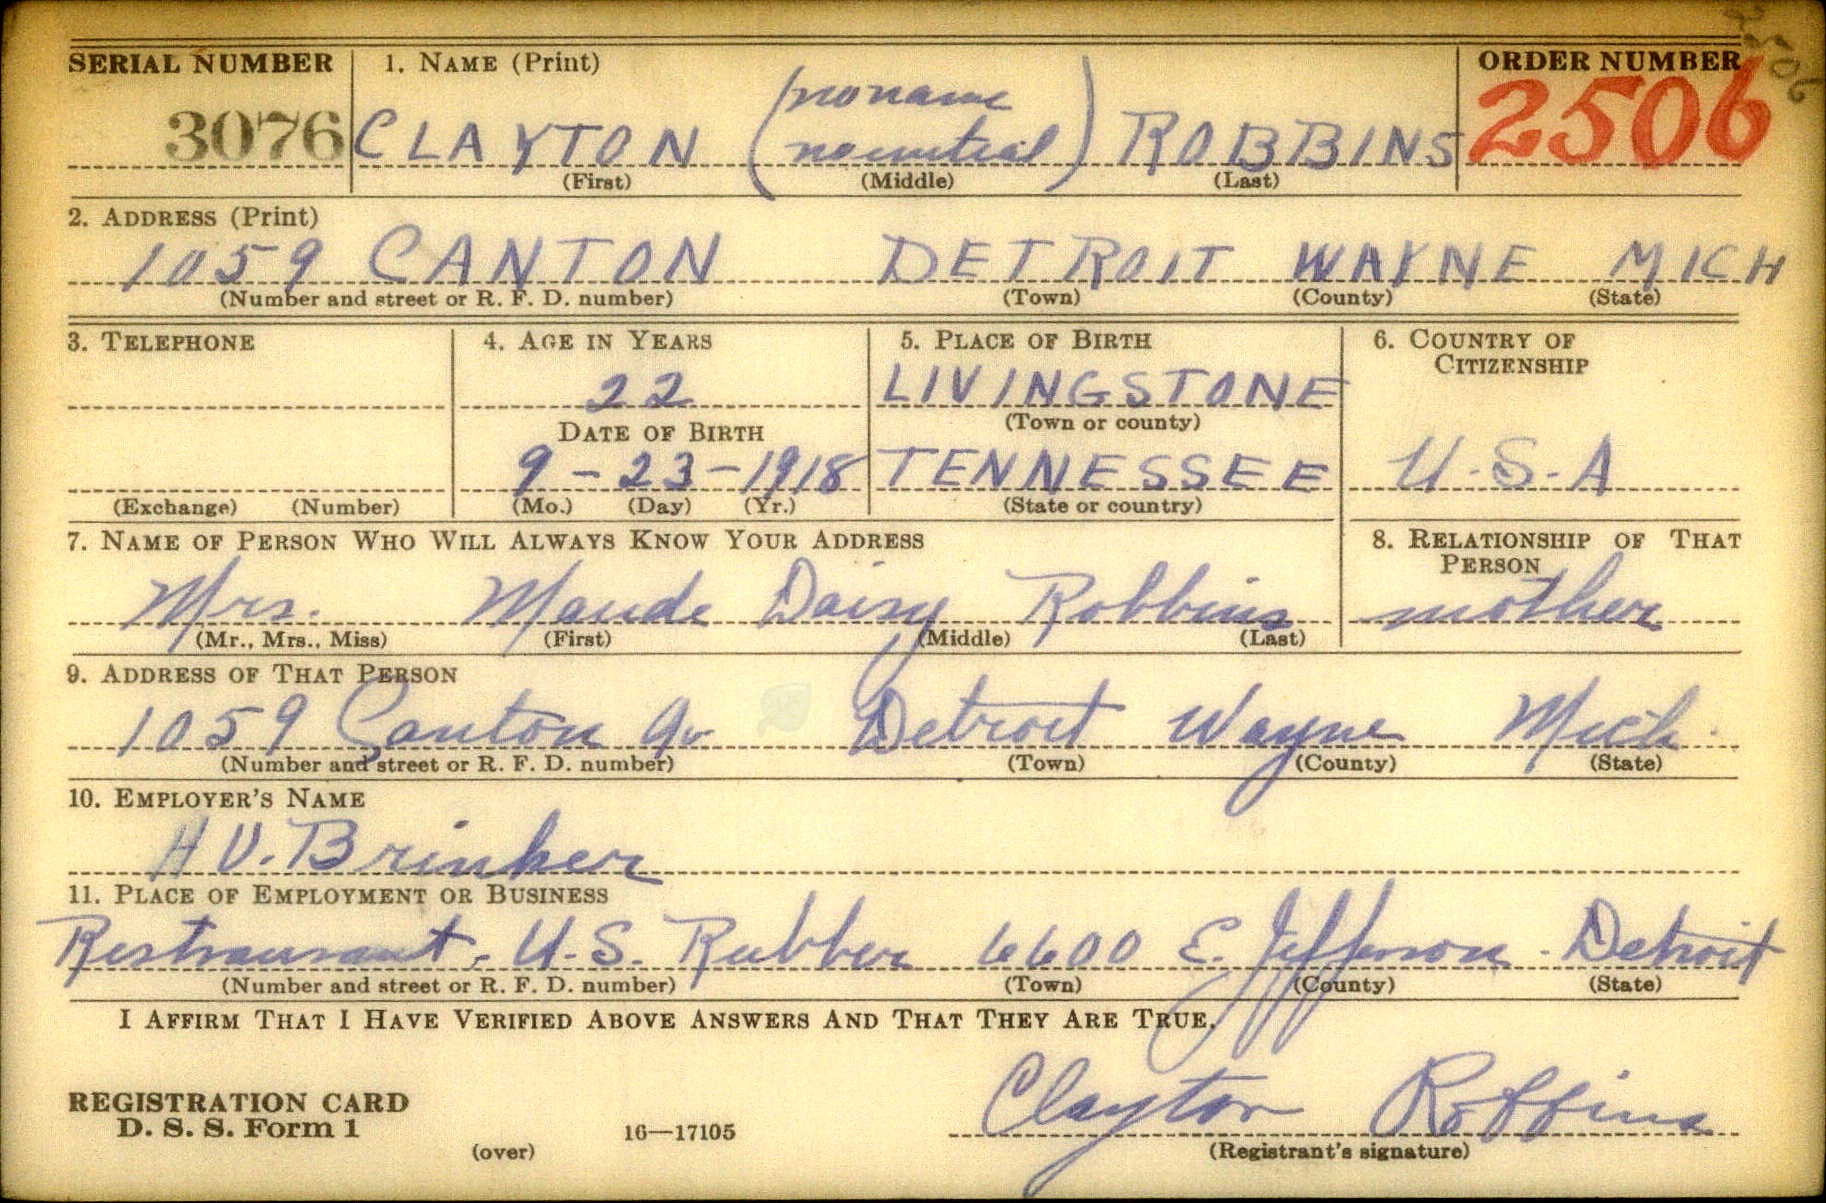 2506
SERIAL NUMBER 1. NAME (Print) ORDER NUMBER
3076 CLAYTON (no name no initial) ROBBINS 2506
(First) (Middle) (Last)
2. ADDRESS (Print)
1059 CANTON DETROIT WAYNE MICH
(Number and street or R. F. D. number) (Town) (County) (State)
3. TELEPHONE 4. AGE IN YEARS 5. PLACE OF BIRTH 6. COUNTRY OF CITIZENSHIP
22 LIVINGSTONE
(Town or county)
DATE OF BIRTH
9-23-1918 TENNESSEE U.S.A
(Exchange) (Number) (Mo.) (Day) (Yr.) (State or country)
7. NAME OF PERSON WHO WILL ALWAYS KNOW YOUR ADDRESS 8. RELATIONSHIP OF THAT PERSON
Mrs. Maude Daisy Robbins mother
(Mr., Mrs., Miss) (First) (Middle) (Last)
9. ADDRESS OF THAT PERSON
1059 Canton Av Detroit Wayne Mich.
(Number and street or R. F. D. number) (Town) (County) (State)
10. EMPLOYER'S NAME
H V. Brinker
11. PLACE OF EMPLOYMENT OR BUSINESS
Restraurant, U.S. Rubber 6600 E. Jefferson. Detroit
(Number and street or R. F. D. number) (Town) (County) (State)
I AFFIRM THAT I HAVE VERIFIED ABOVE ANSWERS AND THAT THEY ARE TRUE.
Clayton Robbins
REGISTRATION CARD
D. S. S. Form 1 (over) 16—17105 (Registrant's signature)